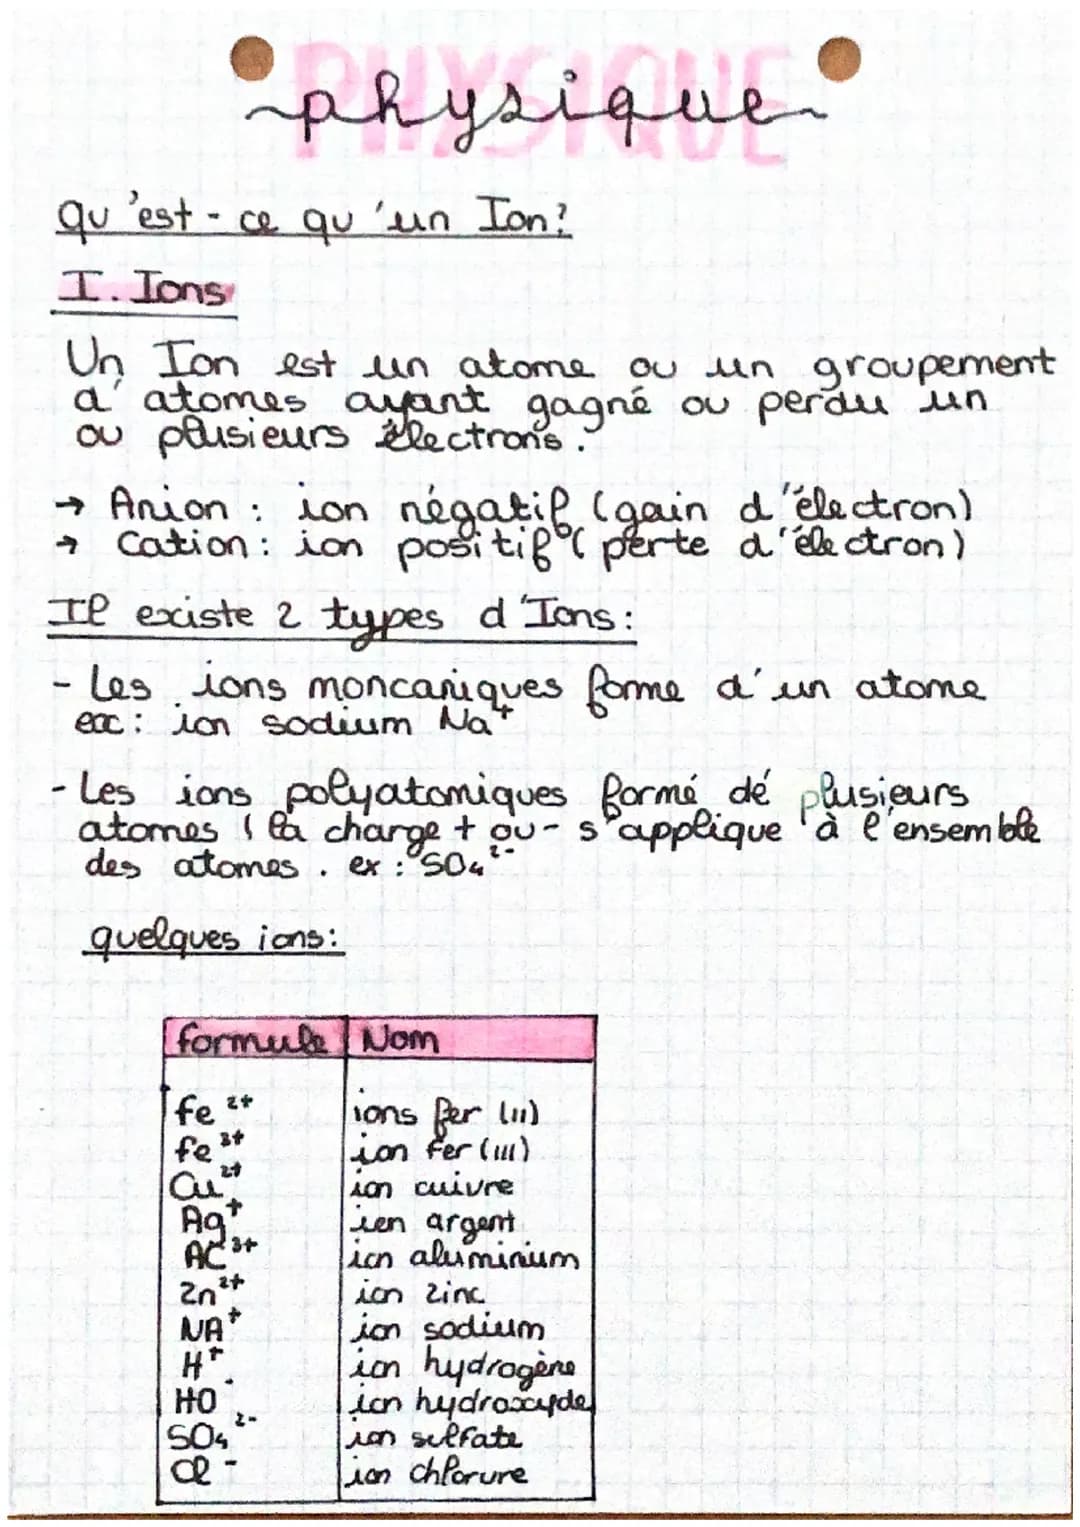 PHYSIQUE
physique
qu'est-ce qu'un Ion?
I. Ions
Un Ion est un atome ou un groupement
d'atomes ayant gagné ou perdu un
ou plusieurs électrons.
→ Anion : ion négatif (gain d'électron)
→ Cation : ion positif (perte d'électron)
Il existe 2 types d'Ions :
- Les ions moncaniques forme d'un atome
ex : ion sodium Na⁺
- Les ions polyatomiques formé dé plusieurs
atomes ( la charge + ou - s'applique à l'ensemble
des atomes. ex : SO₄²⁻
quelques ions :
formule Nom
fe²⁺ ions fer (II)
fe³⁺ ion fer (III)
Cu²⁺ ion cuivre
Ag⁺ ion argent
Al³⁺ ion aluminium
Zn²⁺ ion zinc
NA⁺ ion sodium
H⁺ ion hydrogène
HO⁻ ion hydroxyde
SO₄²⁻ ion sulfate
Cl⁻ ion chlorure